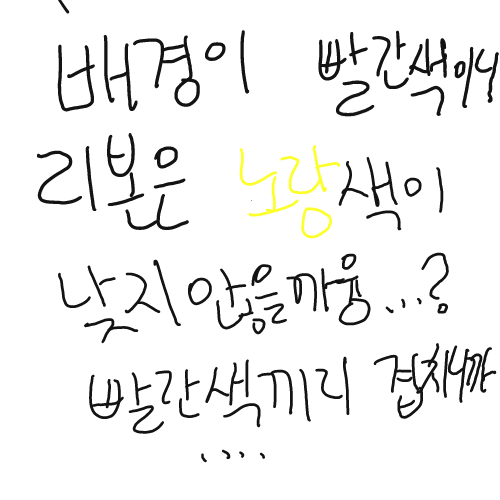 배경이 빨간색이니
리본은 노랑색이
낮지 않을까웅...?
빨간색끼리 겹치니까
....